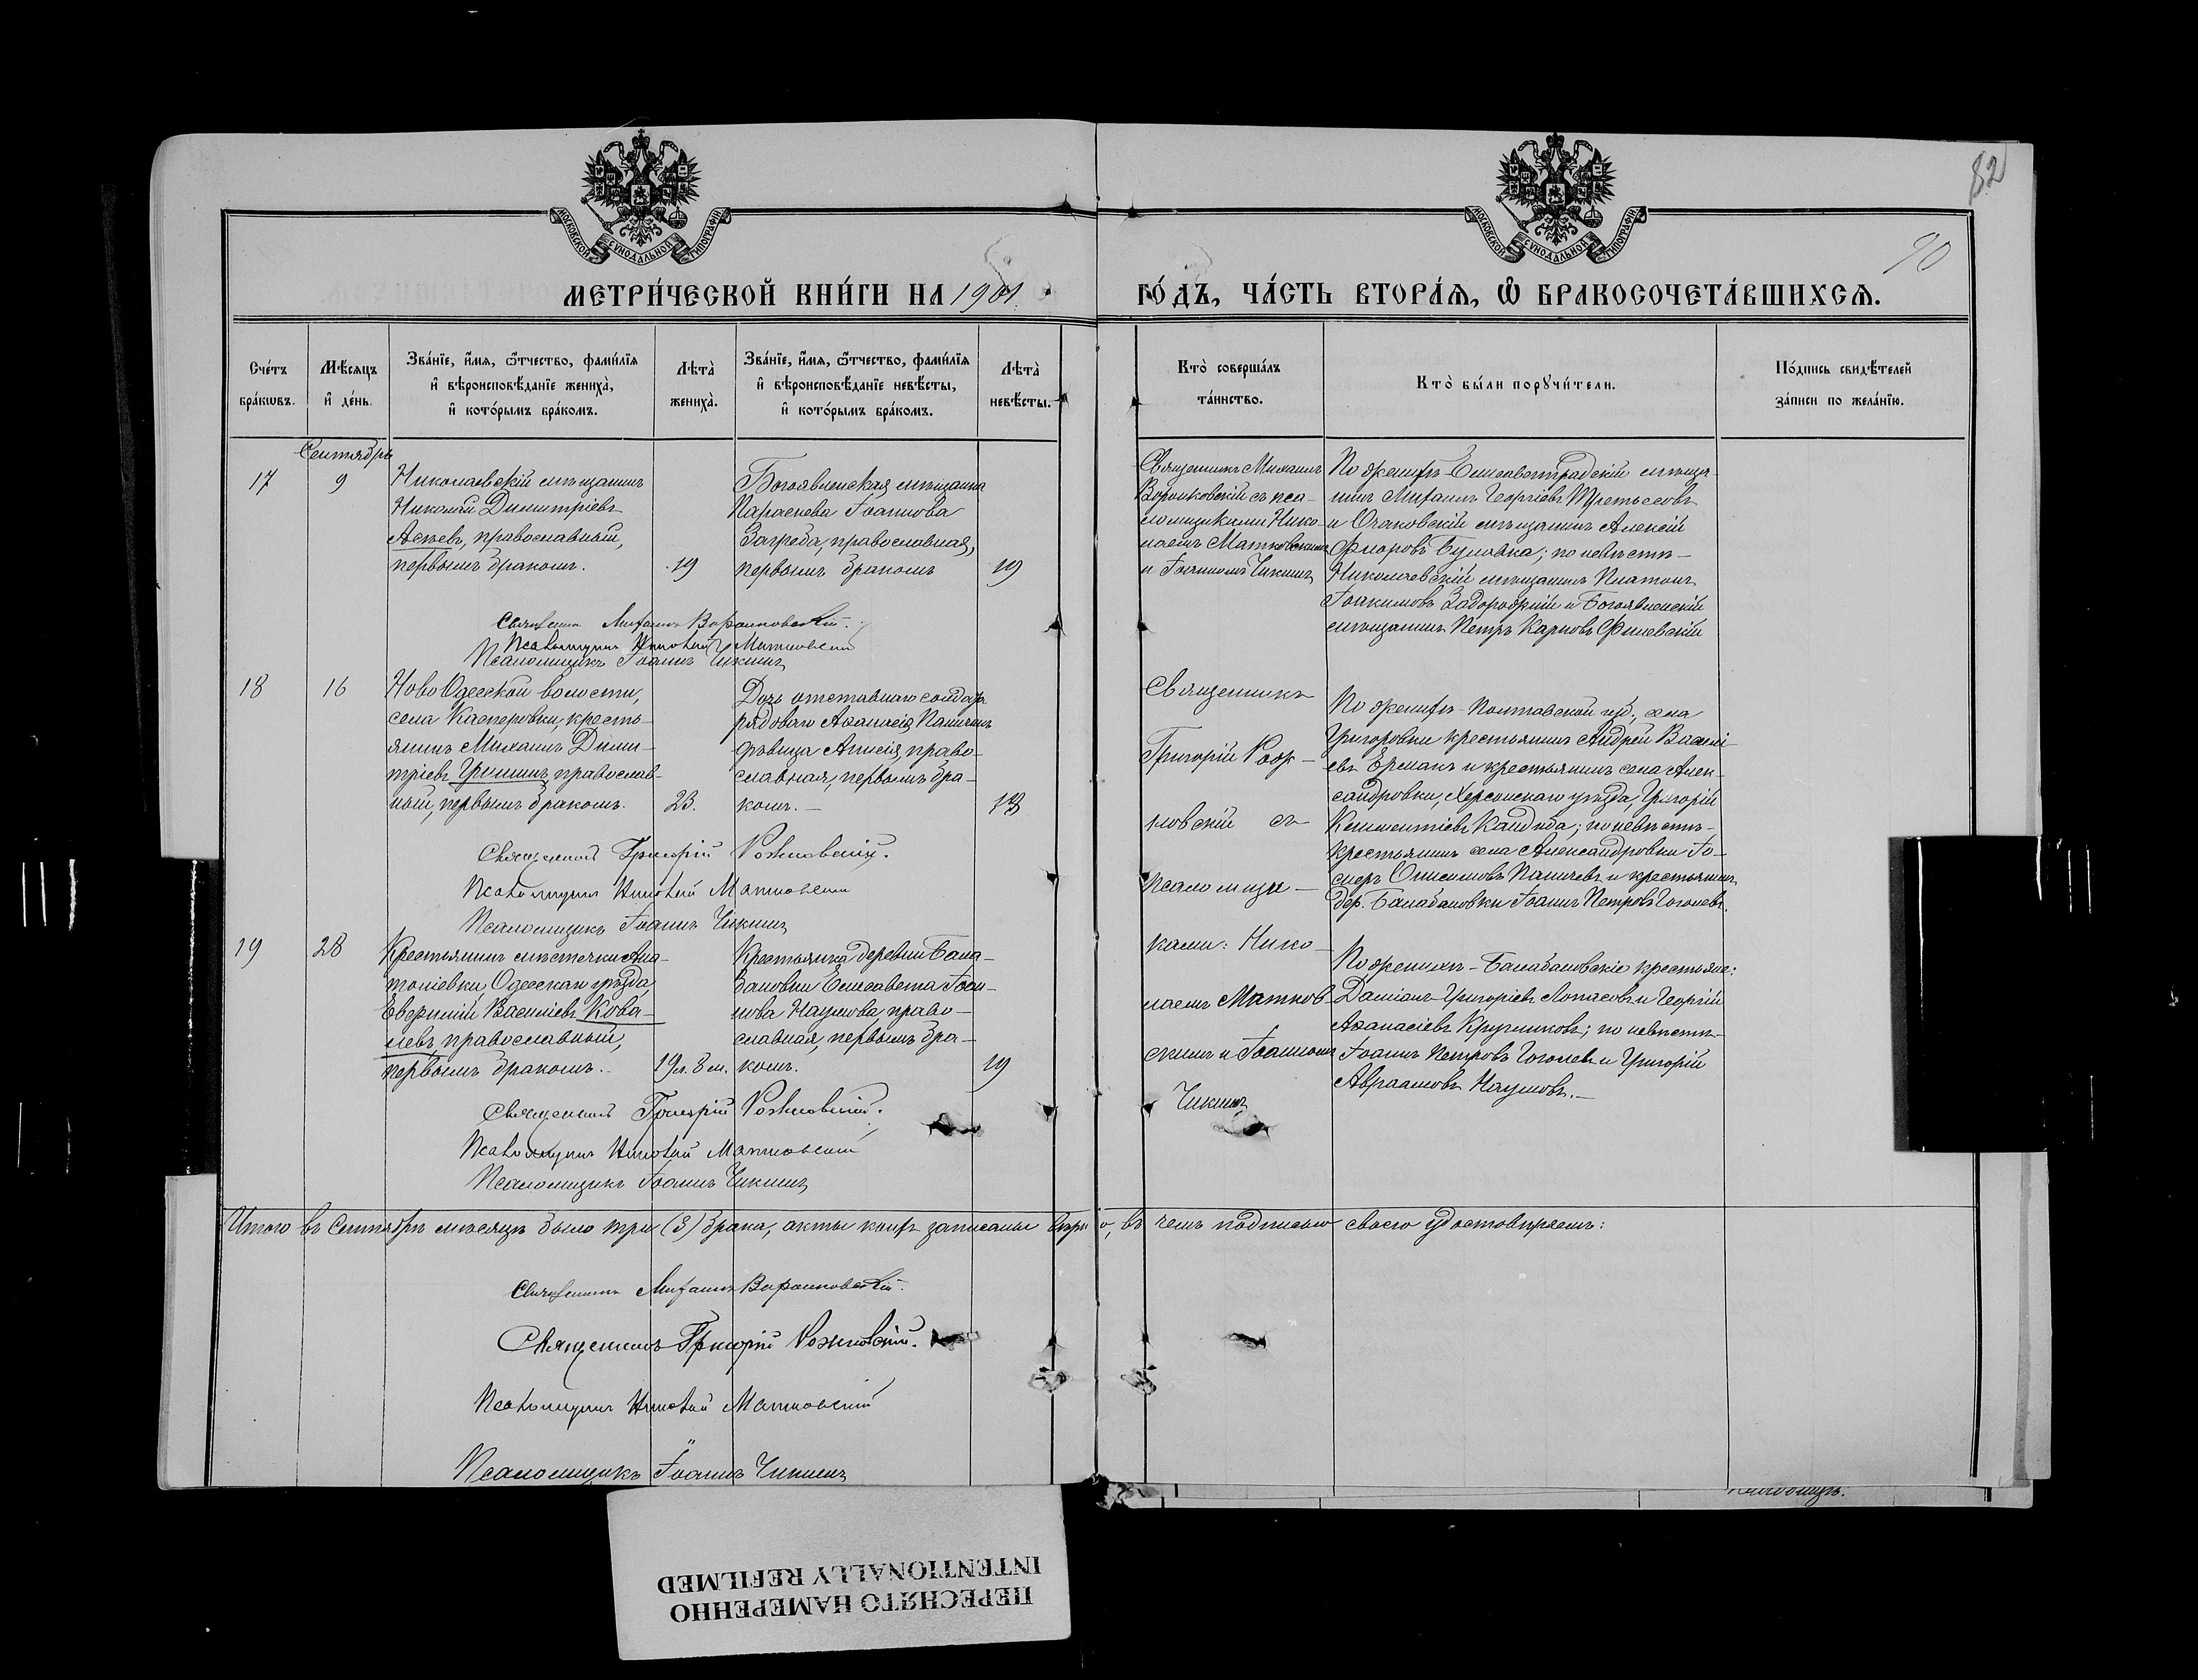 82
90
МОСКОВСКОЙ СѴНОДАЛЬНОЙ ТИПОГРАФІИ
МОСКОВСКОЙ СѴНОДАЛЬНОЙ ТИПОГРАФІИ
МЕТРИ́ЧЕСКОЙ КНИ́ГИ НА 1901
ГО́ДЪ, ЧА́СТЬ ВТОРА́Я, Ѽ БРАКОСОЧЕТА́ВШИХСЯ.
Сче́тъ бра́кѡвъ.
Мѣ́сяцъ и҆ де́нь.
Зва́нїе, и҆́мя, ѻ҆́тчество, фами́лїя
и҆ вѣроисповѣ́данїе жениха̀,
и҆ кото́рымъ бра́комъ.
Лѣта̀ жениха̀.
Зва́нїе, и҆́мя, ѻ҆́тчество, фами́лїя
и҆ вѣроисповѣ́данїе невѣ́сты,
и҆ кото́рымъ бра́комъ.
Лѣта̀ невѣ́сты.
Кто̀ соверша́лъ та́инство.
Кто̀ бы́ли порꙋчи́тели.
По́дпись свидѣ́телей за́писи по жела́нїю.
Сентябрь
17
9
Николаевскій мѣщанинъ
Николай Димитріевъ
Асѣевъ, православный,
первымъ бракомъ.
19
Богоявленская мѣщанка
Параскева Іоаннова
Загреба, православная,
первымъ бракомъ
19
Священникъ Михаилъ
Воронковскій съ пса-
ломщиками Нико-
лаемъ Матковскимъ
и Іоанномъ Чикинъ
По женихѣ Елисаветградскій мѣща-
нинъ Михаилъ Георгіевъ Третьяковъ
и Очаковскій мѣщанинъ Алексій
Буловка; по невѣстѣ –
Николаевскій мѣщанинъ Платонъ
Іоакимовъ Задорожній и Богоявленскій
мѣщанинъ Петръ Карповъ
Священникъ Михаилъ Воронковскій.
Псаломщикъ Николай Матковскій
Псаломщикъ Іоаннъ Чикинъ
18
16
Ново Одесской волости,
села Касперовки, кресть-
янинъ Михаилъ Дими-
тріевъ Гришинъ, православ-
ный, первымъ бракомъ.
23.
Дочь отставного солдата
рядового Аѳанасія
дѣвица Анисія, право-
славная, первымъ бра-
комъ. –
18
Священникъ
Григорій Рож-
новскій съ
псаломщи-
ками: Нико-
лаемъ Матков-
скимъ и Іоанномъ
Чикинъ
По женихѣ – Полтавской губ., села
Григоровки крестьянинъ Андрей Василі-
евъ Ермакъ и крестьянинъ села Алек-
сандровки, Херсонскаго уѣзда, Григорій
Климентіевъ Кандиба; по невѣстѣ –
крестьянинъ села Александровки Іо-
сифъ Онисимовъ и крестьянинъ
дер. Балабановки Іоаннъ Петровъ Гоголевъ.
Священникъ Григорій Рожновскій.
Псаломщикъ Николай Матковскій
Псаломщикъ Іоаннъ Чикинъ
19
28
Крестьянинъ мѣстечки Ана-
толіевки, Одесскаго уѣзда,
Евѳимій Василіевъ Кова-
левъ, православный,
первымъ бракомъ.
19 л. 8 м.
Крестьянка деревни Бала-
бановки Елисавета Іоан-
нова Наумова, право-
славная, первымъ бра-
комъ.
19
По женихѣ – Балабановскіе крестьяне:
Даміанъ Григоріевъ Лопасовъ и Георгій
Аѳанасіевъ Кругликовъ; по невѣстѣ –
Іоаннъ Петровъ Гоголевъ и Григорій
Авраамовъ Наумовъ. –
Священникъ Григорій Рожновскій.
Псаломщикъ Николай Матковскій
Псаломщикъ Іоаннъ Чикинъ
Итого въ Сентябрѣ мѣсяцѣ было три (3) брака, акты коихъ записаны вѣрно, въ чемъ подписью своею удостовѣряемъ:
Священникъ Михаилъ Воронковскій.
Священникъ Григорій Рожновскій.
Псаломщикъ Николай Матковскій
Псаломщикъ Іоаннъ Чикинъ
ПЕРЕСНЯТО НАМЕРЕННО
INTENTIONALLY REFILMED